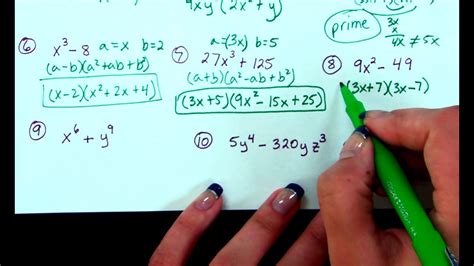 9xy (2x² + y)
prime
3x
x
4x ≠ 5x
⑥ x³ - 8 a = x b = 2
(a-b)(a²+ab+b²)
(x-2)(x²+2x+4)
⑦ a = (3x) b = 5
27x³ + 125
(a+b)(a²-ab+b²)
(3x+5)(9x²-15x+25)
⑧ 9x² - 49
(3x+7)(3x-7)
⑨ x⁶ + y⁹
⑩ 5y⁴ - 320yz³